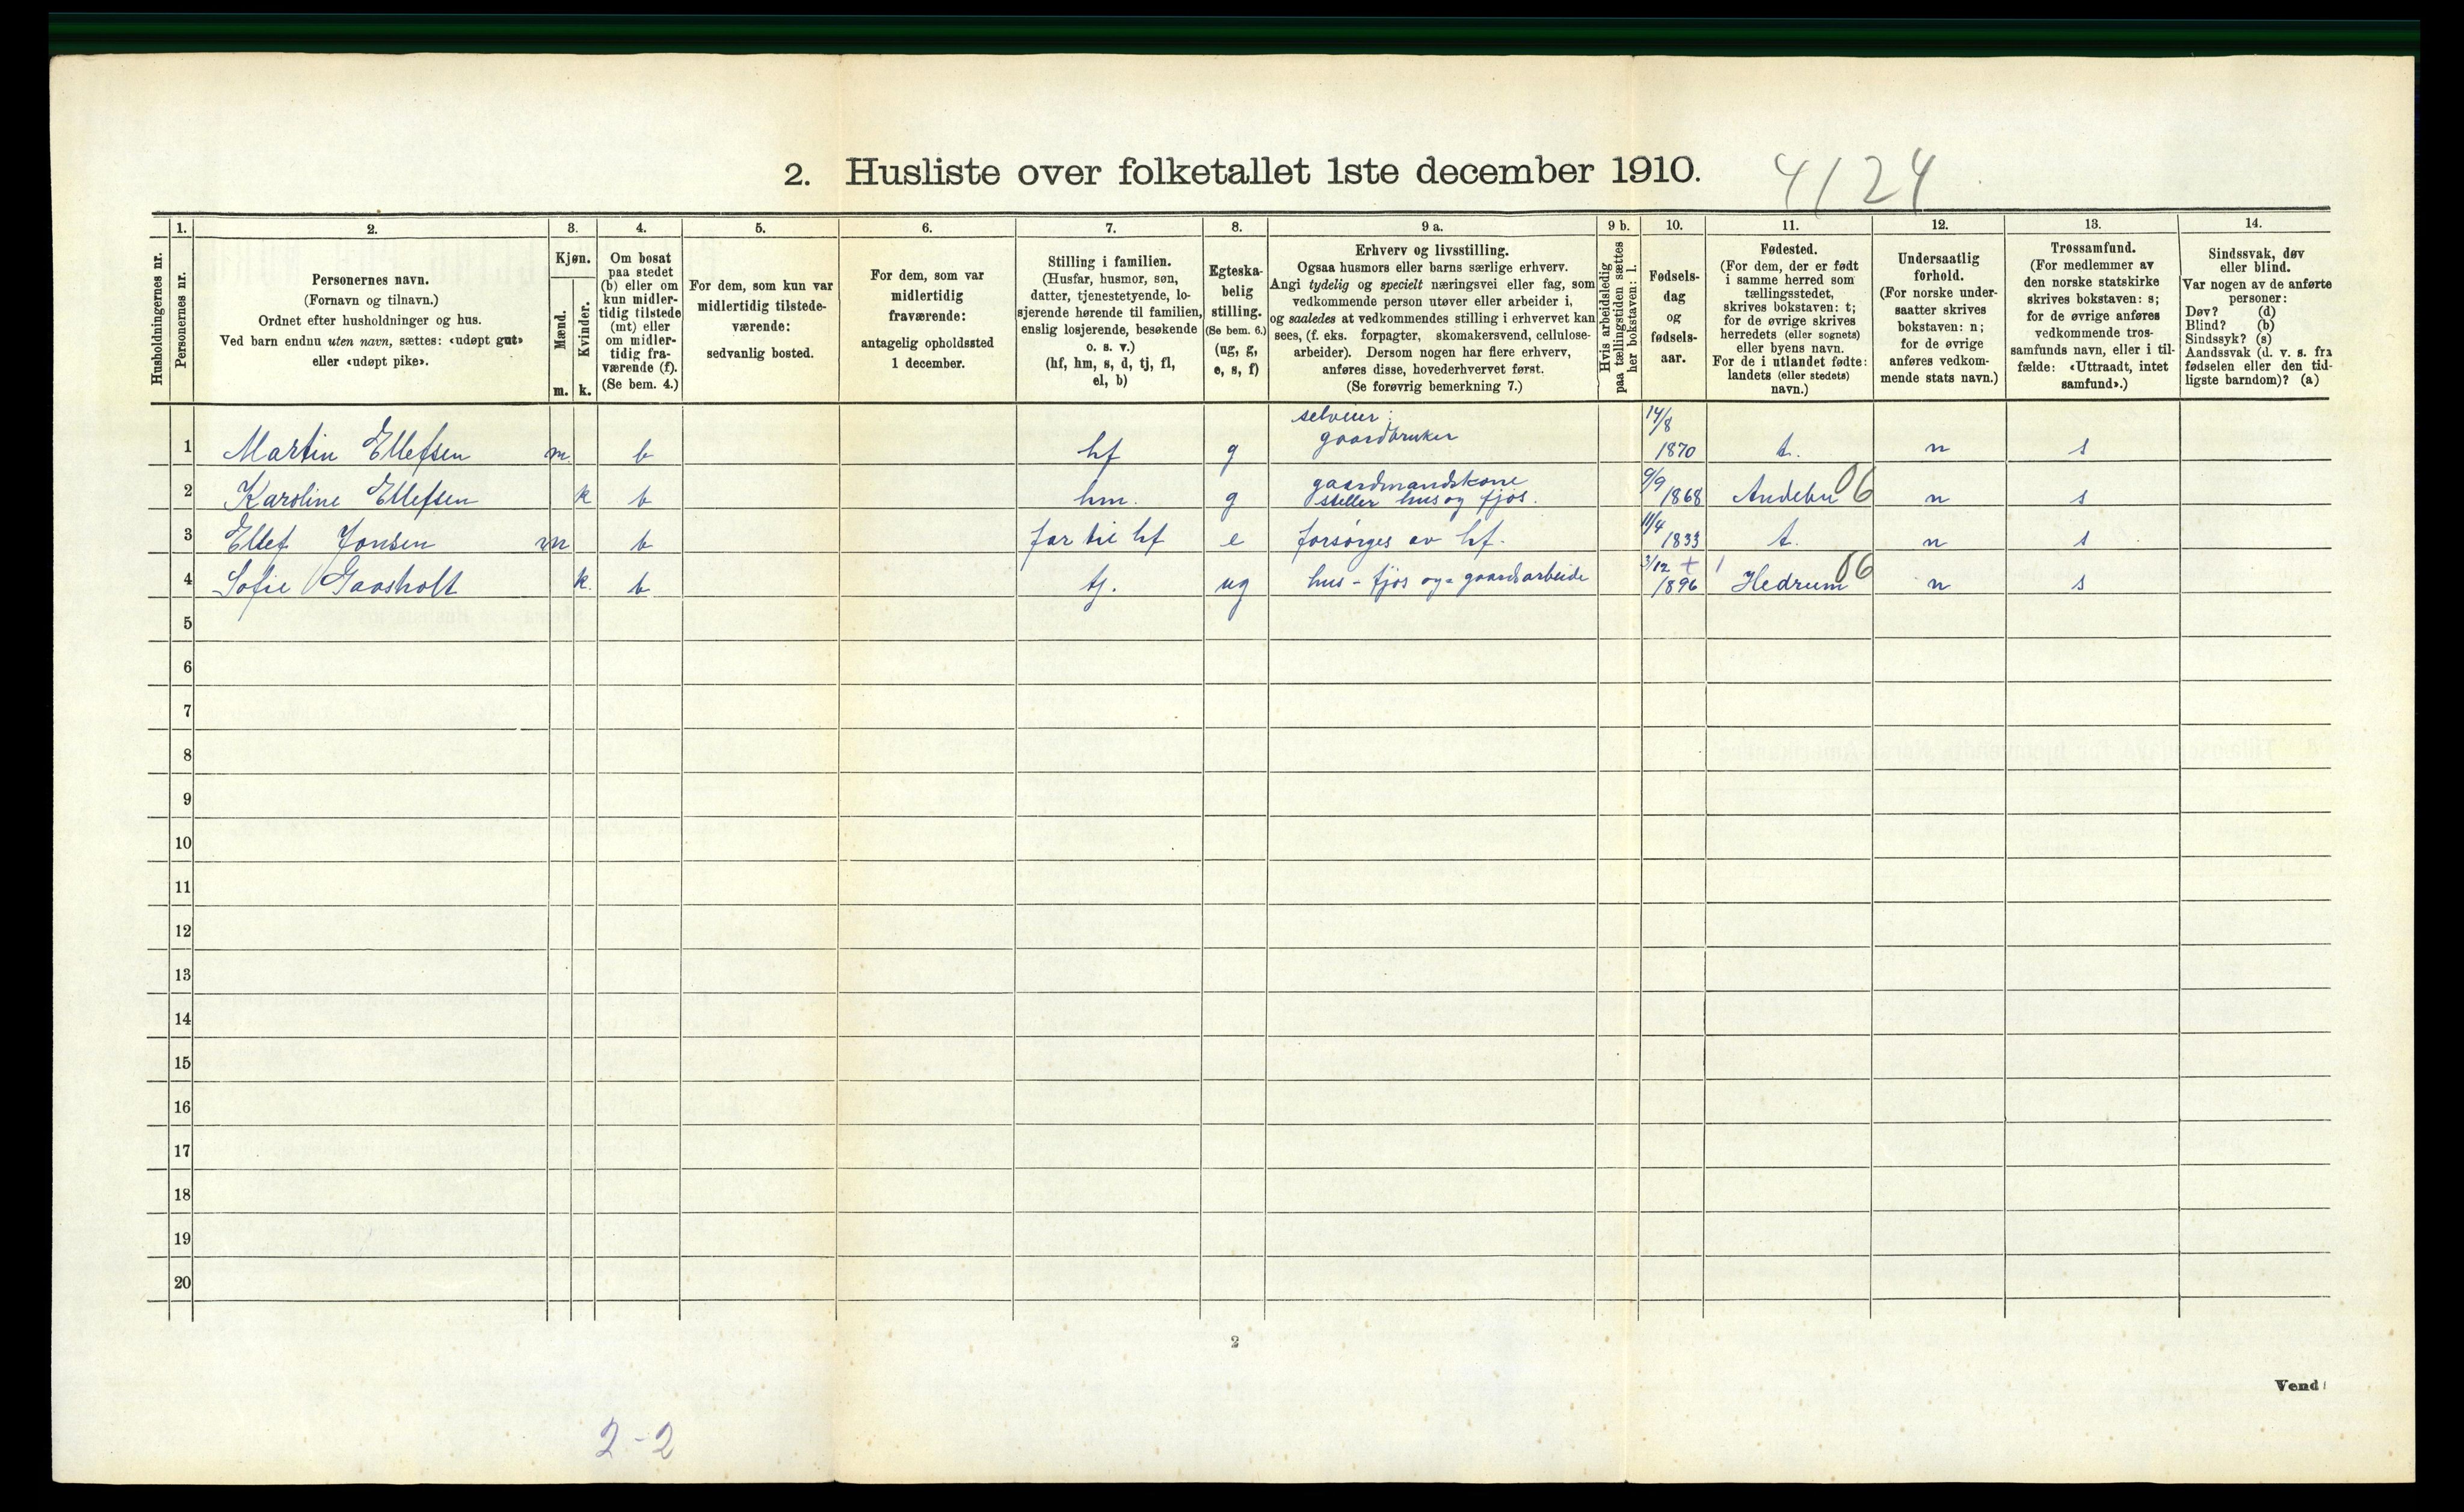 2. Husliste over folketallet 1ste december 1910. 4124
Husholdningernes nr.
1. Personernes nr.
2. Personernes navn.
(Fornavn og tilnavn.)
Ordnet efter husholdninger og hus.
Ved barn endnu uten navn, sættes: «udøpt gut»
eller «udøpt pike».
3. Kjøn.
Mænd. m.
Kvinder. k.
4. Om bosat
paa stedet
(b) eller om
kun midler-
tidig tilstede
(mt) eller
om midler-
tidig fra-
værende (f).
(Se bem. 4.)
5. For dem, som kun var
midlertidig tilstede-
værende:
sedvanlig bosted.
6. For dem, som var
midlertidig
fraværende:
antagelig opholdssted
1 december.
7. Stilling i familien.
(Husfar, husmor, søn,
datter, tjenestetyende, lo-
sjerende hørende til familien,
enslig losjerende, besøkende
o. s. v.)
(hf, hm, s, d, tj, fl,
el, b)
8. Egteska-
belig
stilling.
(Se bem. 6.)
(ug, g,
e, s, f)
9 a. Erhverv og livsstilling.
Ogsaa husmors eller barns særlige erhverv.
Angi tydelig og specielt næringsvei eller fag, som
vedkommende person utøver eller arbeider i,
og saaledes at vedkommendes stilling i erhvervet kan
sees, (f. eks. forpagter, skomakersvend, cellulose-
arbeider). Dersom nogen har flere erhverv,
anføres disse, hovederhvervet først.
(Se forøvrig bemerkning 7.)
9 b. Hvis arbeidsledig
paa tællingstiden sættes
her bokstaven: l.
10. Fødsels-
dag
og
fødsels-
aar.
11. Fødested.
(For dem, der er født
i samme herred som
tællingsstedet,
skrives bokstaven: t;
for de øvrige skrives
herredets (eller sognets)
eller byens navn.
For de i utlandet fødte:
landets (eller stedets)
navn.)
12. Undersaatlig
forhold.
(For norske under-
saatter skrives
bokstaven: n;
for de øvrige
anføres vedkom-
mende stats navn.)
13. Trossamfund.
(For medlemmer av
den norske statskirke
skrives bokstaven: s;
for de øvrige anføres
vedkommende tros-
samfunds navn, eller i til-
fælde: «Uttraadt, intet
samfund».)
14. Sindssvak, døv
eller blind.
Var nogen av de anførte
personer:
Døv? (d)
Blind? (b)
Sindssyk? (s)
Aandssvak (d. v. s. fra
fødselen eller den tid-
ligste barndom)? (a)
1 Martin Ellefsen m. b hf g selveier; gaardbruker 14/8 1870 t. n s
2 Karoline Ellefsen k b hm. g gaardmandskone steller hus og fjøs. 9/9 1868 Andebu 06 n s
3 Ellef Jonsen m b far til hf e forsørges av hf. 11/4 1833 t. n s
4 Sofie Gaasholt k. b tj. ug hus- fjøs og= gaardsarbeide 3/12 + 1896 1 Hedrum 06 n s
5
6
7
8
9
10
11
12
13
14
15
16
17
18
19
20
2
Vend
2-2